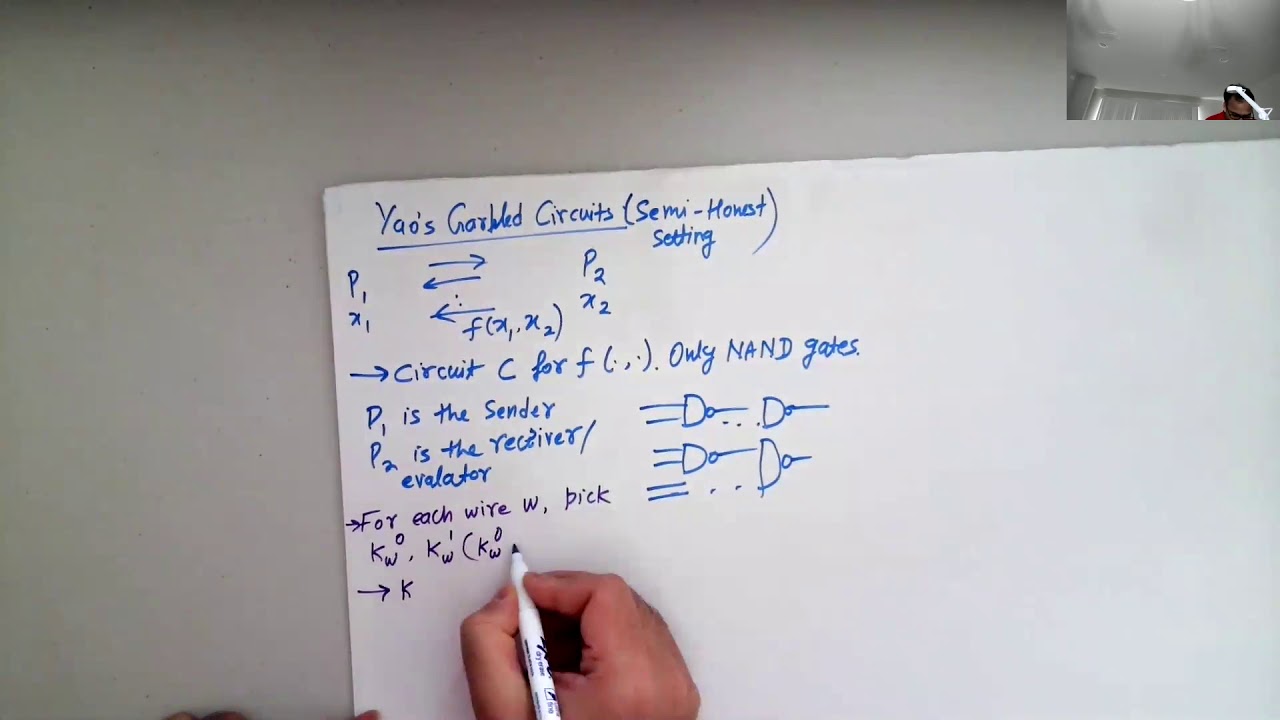 Yao's Garbled Circuits (Semi-Honest
Setting)
P₁ P₂
x₁ x₂
f(x₁, x₂)
→ Circuit C for f(·,·). Only NAND gates.
P₁ is the Sender
P₂ is the receiver/
evalator
→ For each wire w, pick
K_w^0, K_w^1 (K_w^0
→ K